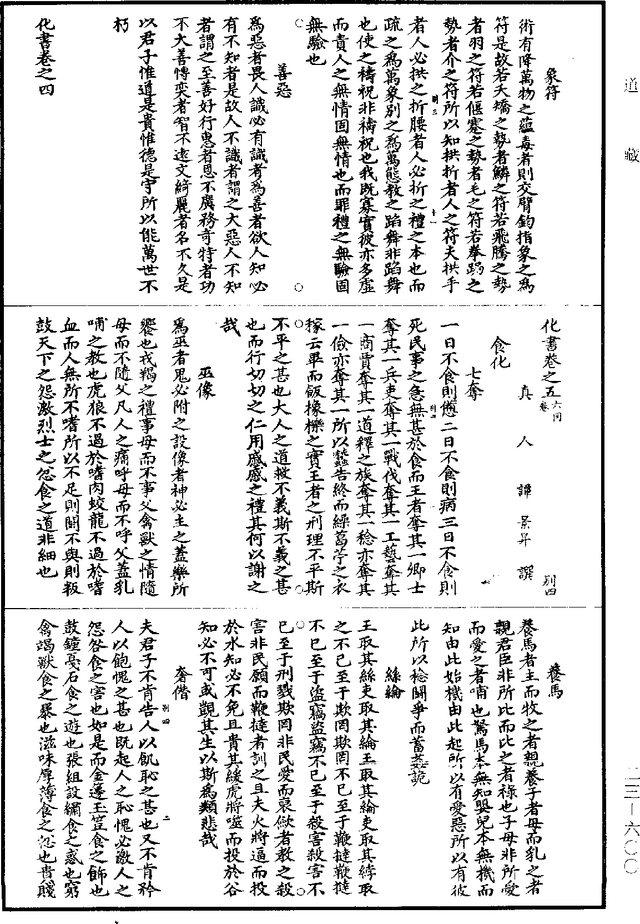 道藏
象符
術有降萬物之蘊毒者則交臂鈎指象之爲
符是故若夭矯之勢者鱗之符若飛騰之勢
者羽之符若偃蹇之勢者毛之符若拳跼之
勢者介之符所以知拱折者人之符夫拱手
者人必拱之折腰者人必折之禮之本也而
疏之爲萬象別之爲萬態教之蹈舞非蹈舞
也使之禱祝非禱祝也我既寡實彼亦多虛
而責人之無情固無情也而罪禮之無驗固
無驗也
善惡
爲惡者畏人識必有識者爲善者欲人知必
有不知者是故人不識者謂之大惡人不知
者謂之至善好行惠者恩不廣務奇特者功
不大善博奕者智不遠文綺麗者名不久是
以君子惟道是貴惟德是守所以能萬世不
朽
化書卷之四
化書卷之五 六同卷 別四
真人譚景昇撰
食化
七奪
一日不食則憊二日不食則病三日不食則
死民事之急無甚於食而王者奪其一卿士
奪其一兵吏奪其一戰伐奪其一工藝奪其
一商賈奪其一道釋之族奪其一稔亦奪其
一儉亦奪其一所以蠶告終而繰葛苧之衣
稼云畢而飯橡櫟之實王者之刑理不平斯
不平之甚也大人之道救不義斯不義之甚
也而行切切之仁用慼慼之禮其何以謝之
哉
巫像
爲巫者鬼必附之設像者神必主之蓋樂所
饗也戎羯之禮事母而不事父禽獸之情隨
母而不隨父凡人之痛呼母而不呼父蓋乳
哺之教也虎狼不過於嗜肉蛟龍不過於嗜
血而人無所不嗜所以不足則鬭不與則叛
鼓天下之怨激烈士之忿食之道非細也
養馬
養馬者主而牧之者親養子者母而乳之者
親君臣非所比而比之者祿也子母非所愛
而愛之者哺也駑馬本無知嬰兒本無機而
知由此始機由此起所以有愛惡所以有彼
此所以稔鬭爭而蓄姦詭
絲綸
王取其絲吏取其綸王取其綸吏取其綍取
之不已至于欺罔欺罔不已至于鞭撻鞭撻
不已至于盜竊盜竊不已至于殺害殺害不
已至于刑戮欺罔非民愛而裒斂者教之殺
害非民願而鞭撻者訓之且夫火將逼而投
於水知必不免且貴其緩虎將噬而投於谷
知必不可或覬其生以斯爲類悲哉
奢僭
夫君子不肯告人以飢恥之甚也又不肯矜
人以飽愧之甚也既起人之恥愧必激人之
怨咎食之害也如是而金籩玉豆食之飾也
鼓鐘戞石食之遊也張組設繡食之惑也窮
禽竭獸食之暴也滋味厚薄食之忿也貴賤
二三－六〇〇